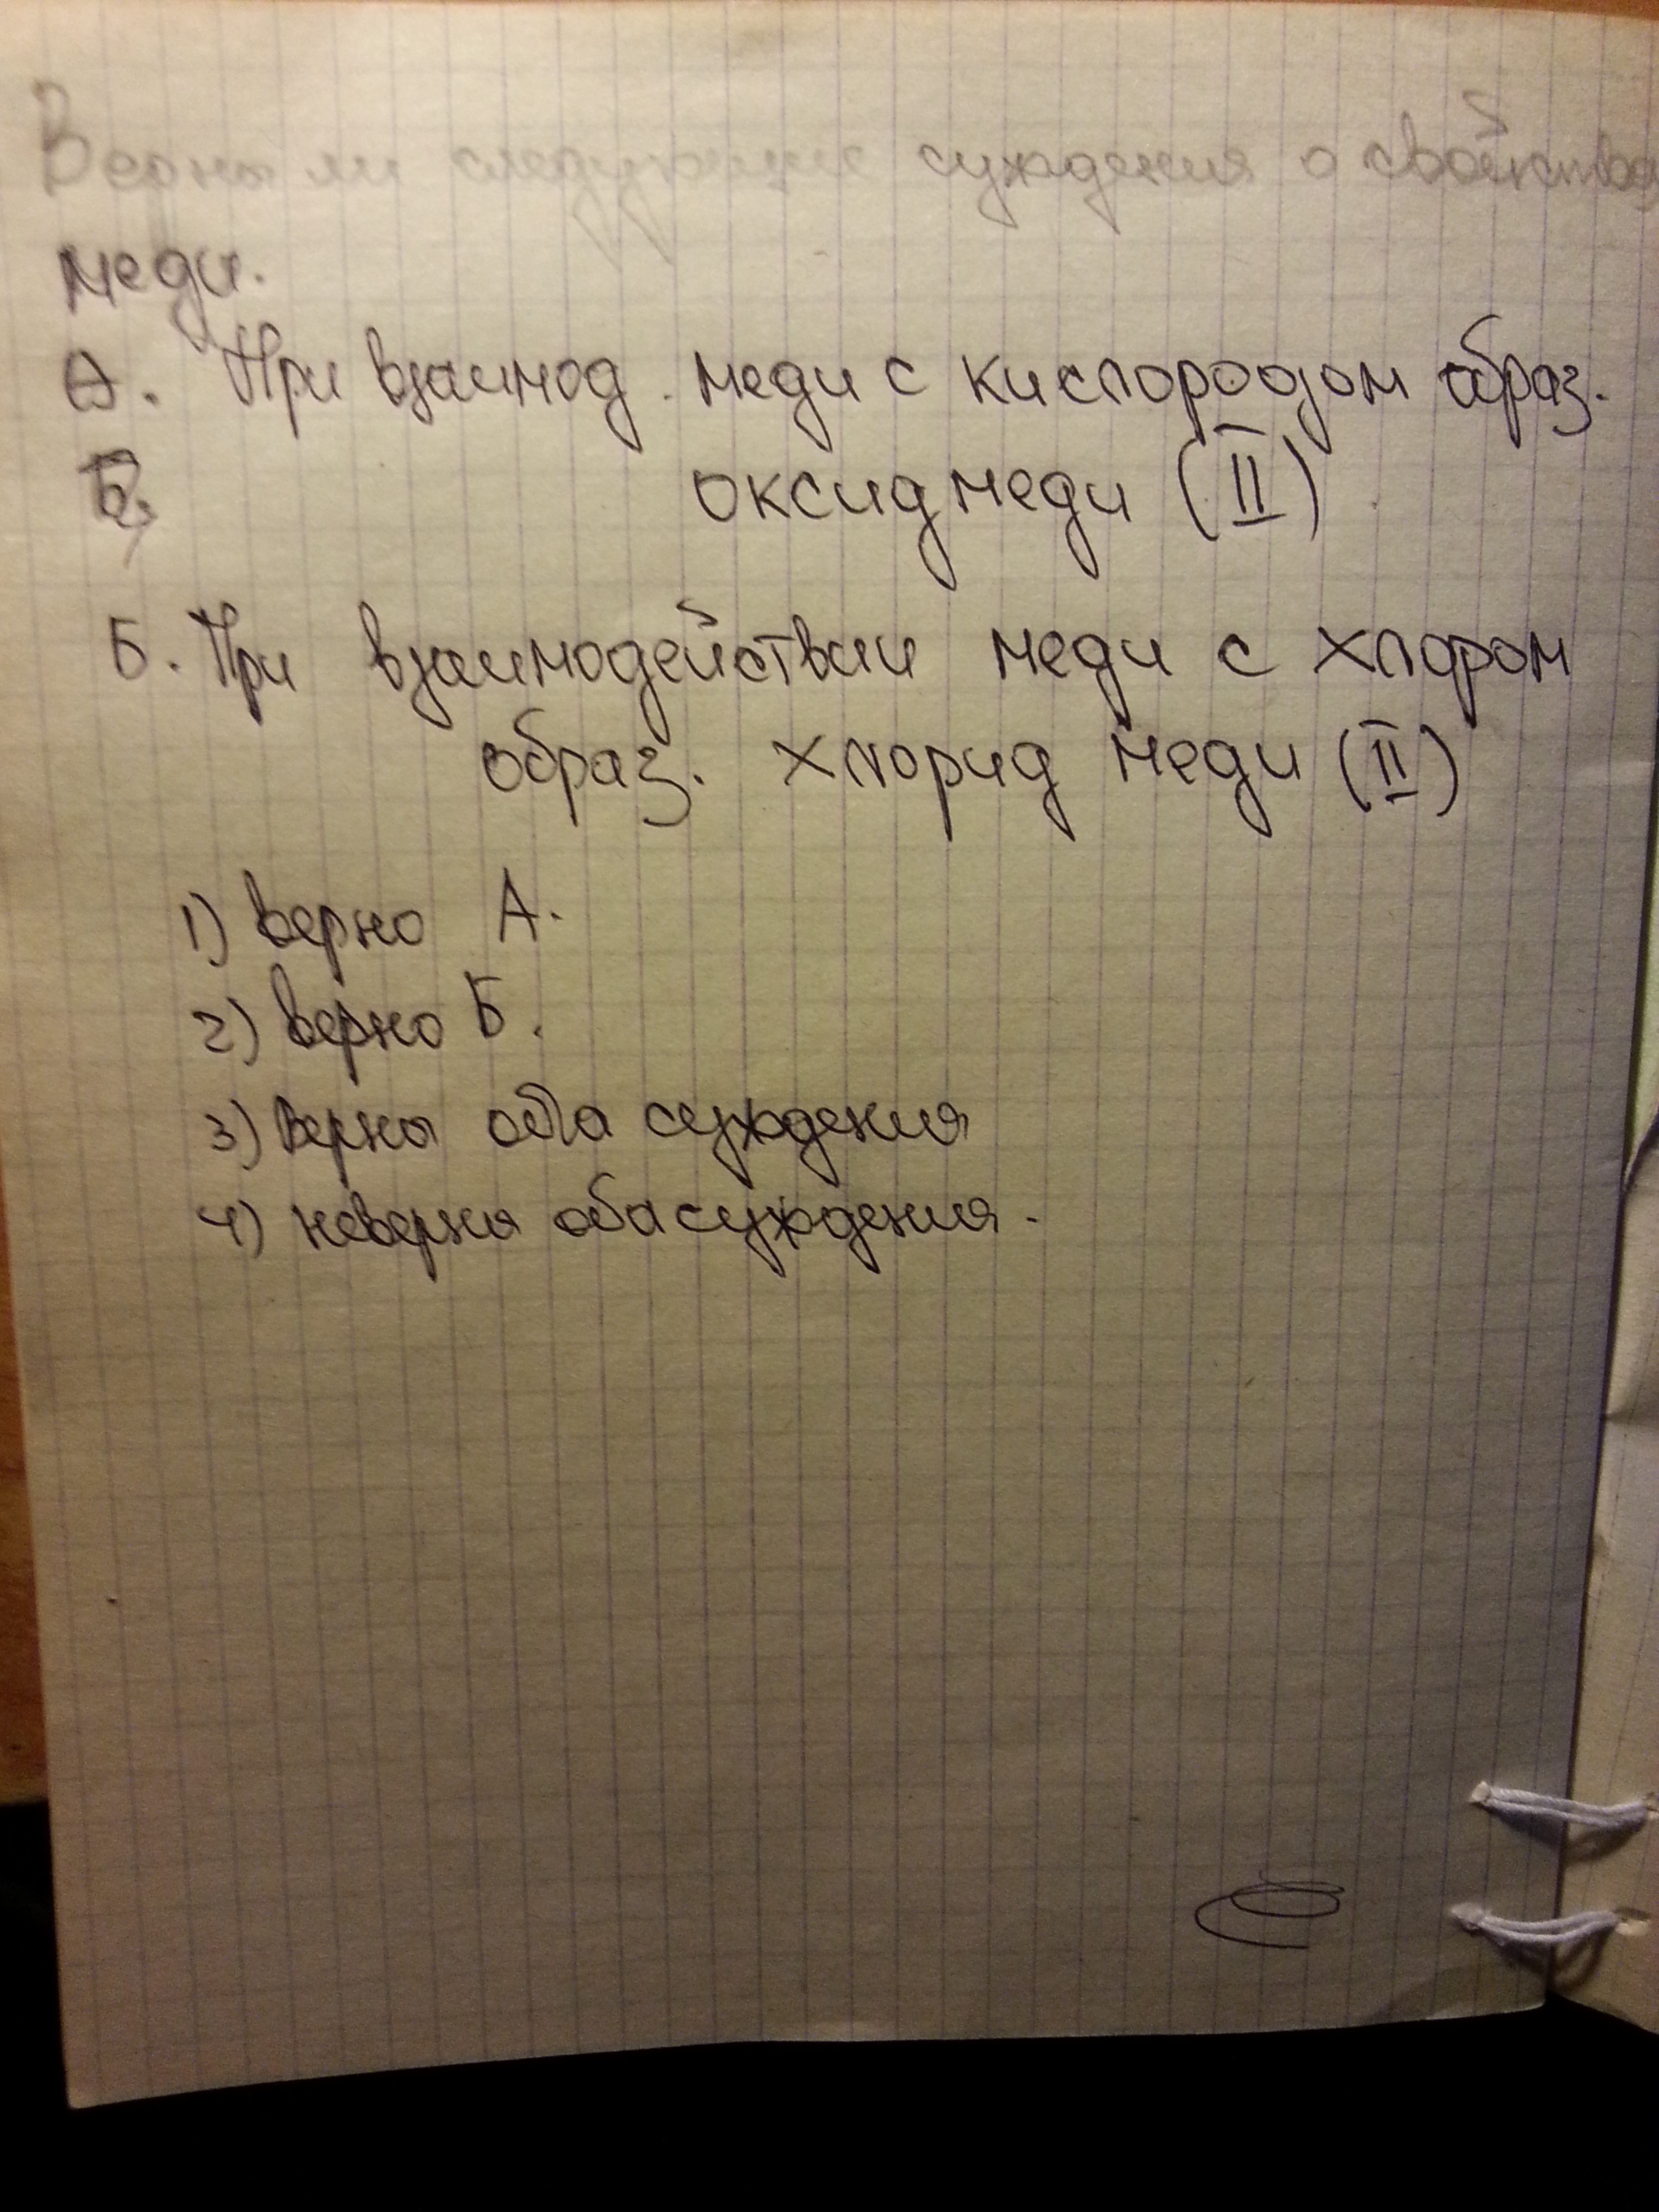 Верны ли следующие суждения о свойствах
меди.
А. При взаимод. меди с кислородом образ.
Б.
оксид меди (II)
Б. При взаимодействии меди с хлором
образ. хлорид меди (II)
1) верно А.
2) верно Б.
3) верны оба суждения
4) неверны оба суждения.